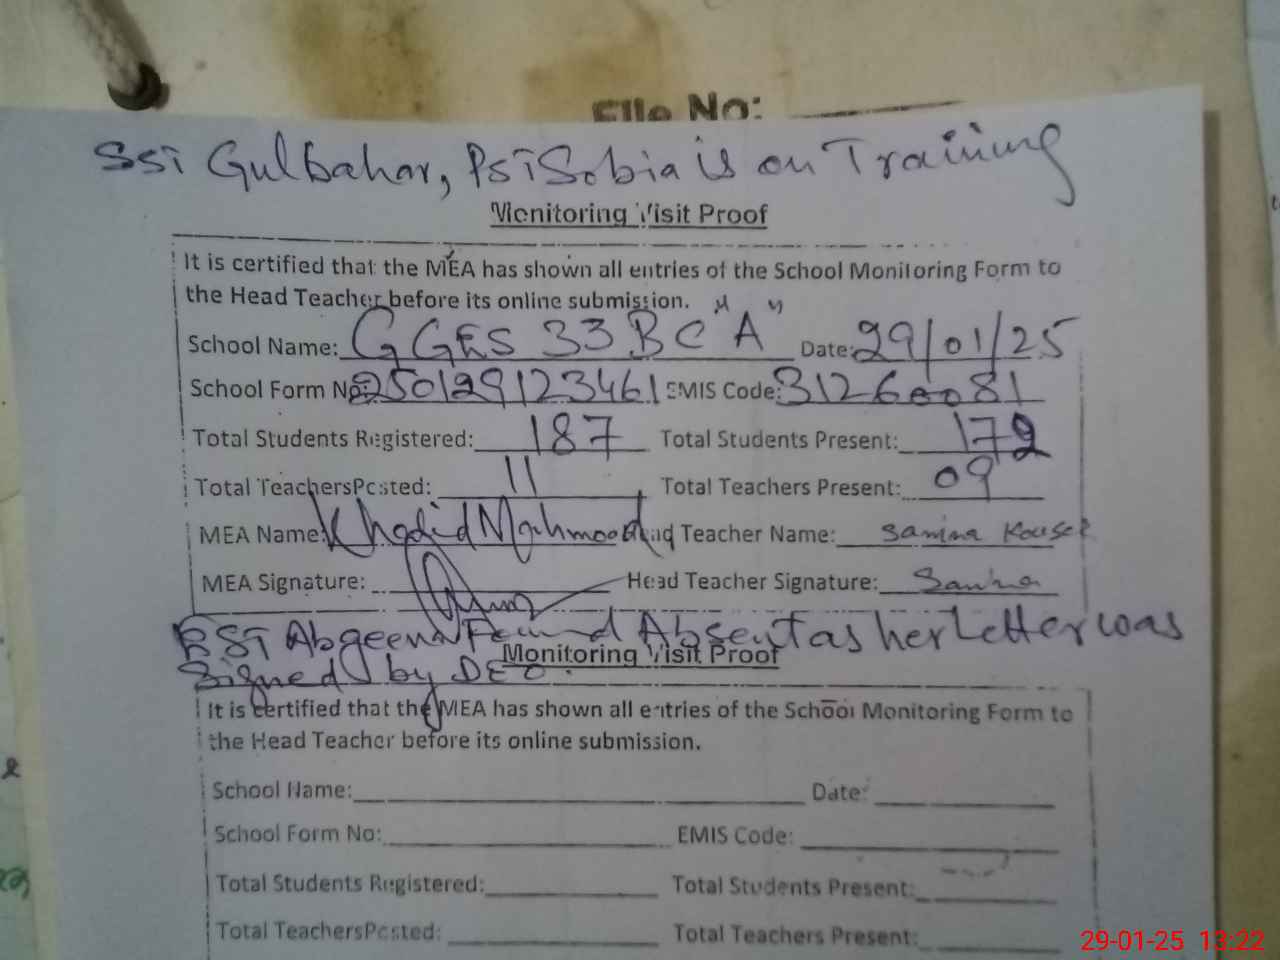 File No:
SST Gulbahar, PST Sobia is on Training
Monitoring Visit Proof
It is certified that the MEA has shown all entries of the School Monitoring Form to
the Head Teacher before its online submission.
School Name: GGES 33 BC "A" Date: 29/01/25
School Form No: 250129123461 EMIS Code: 31260081
Total Students Registered: 187 Total Students Present: 172
Total TeachersPosted: 11 Total Teachers Present: 09
MEA Name: Khalid Mahmood Head Teacher Name: Samina Kousar
MEA Signature: Head Teacher Signature: Samina
EST Abgeena Found Absent as her Letter was
Signed by DEO.
Monitoring Visit Proof
It is certified that the MEA has shown all entries of the School Monitoring Form to
the Head Teacher before its online submission.
School Name: Date:
School Form No: EMIS Code:
Total Students Registered: Total Students Present:
Total TeachersPosted: Total Teachers Present:
29-01-25 13:22